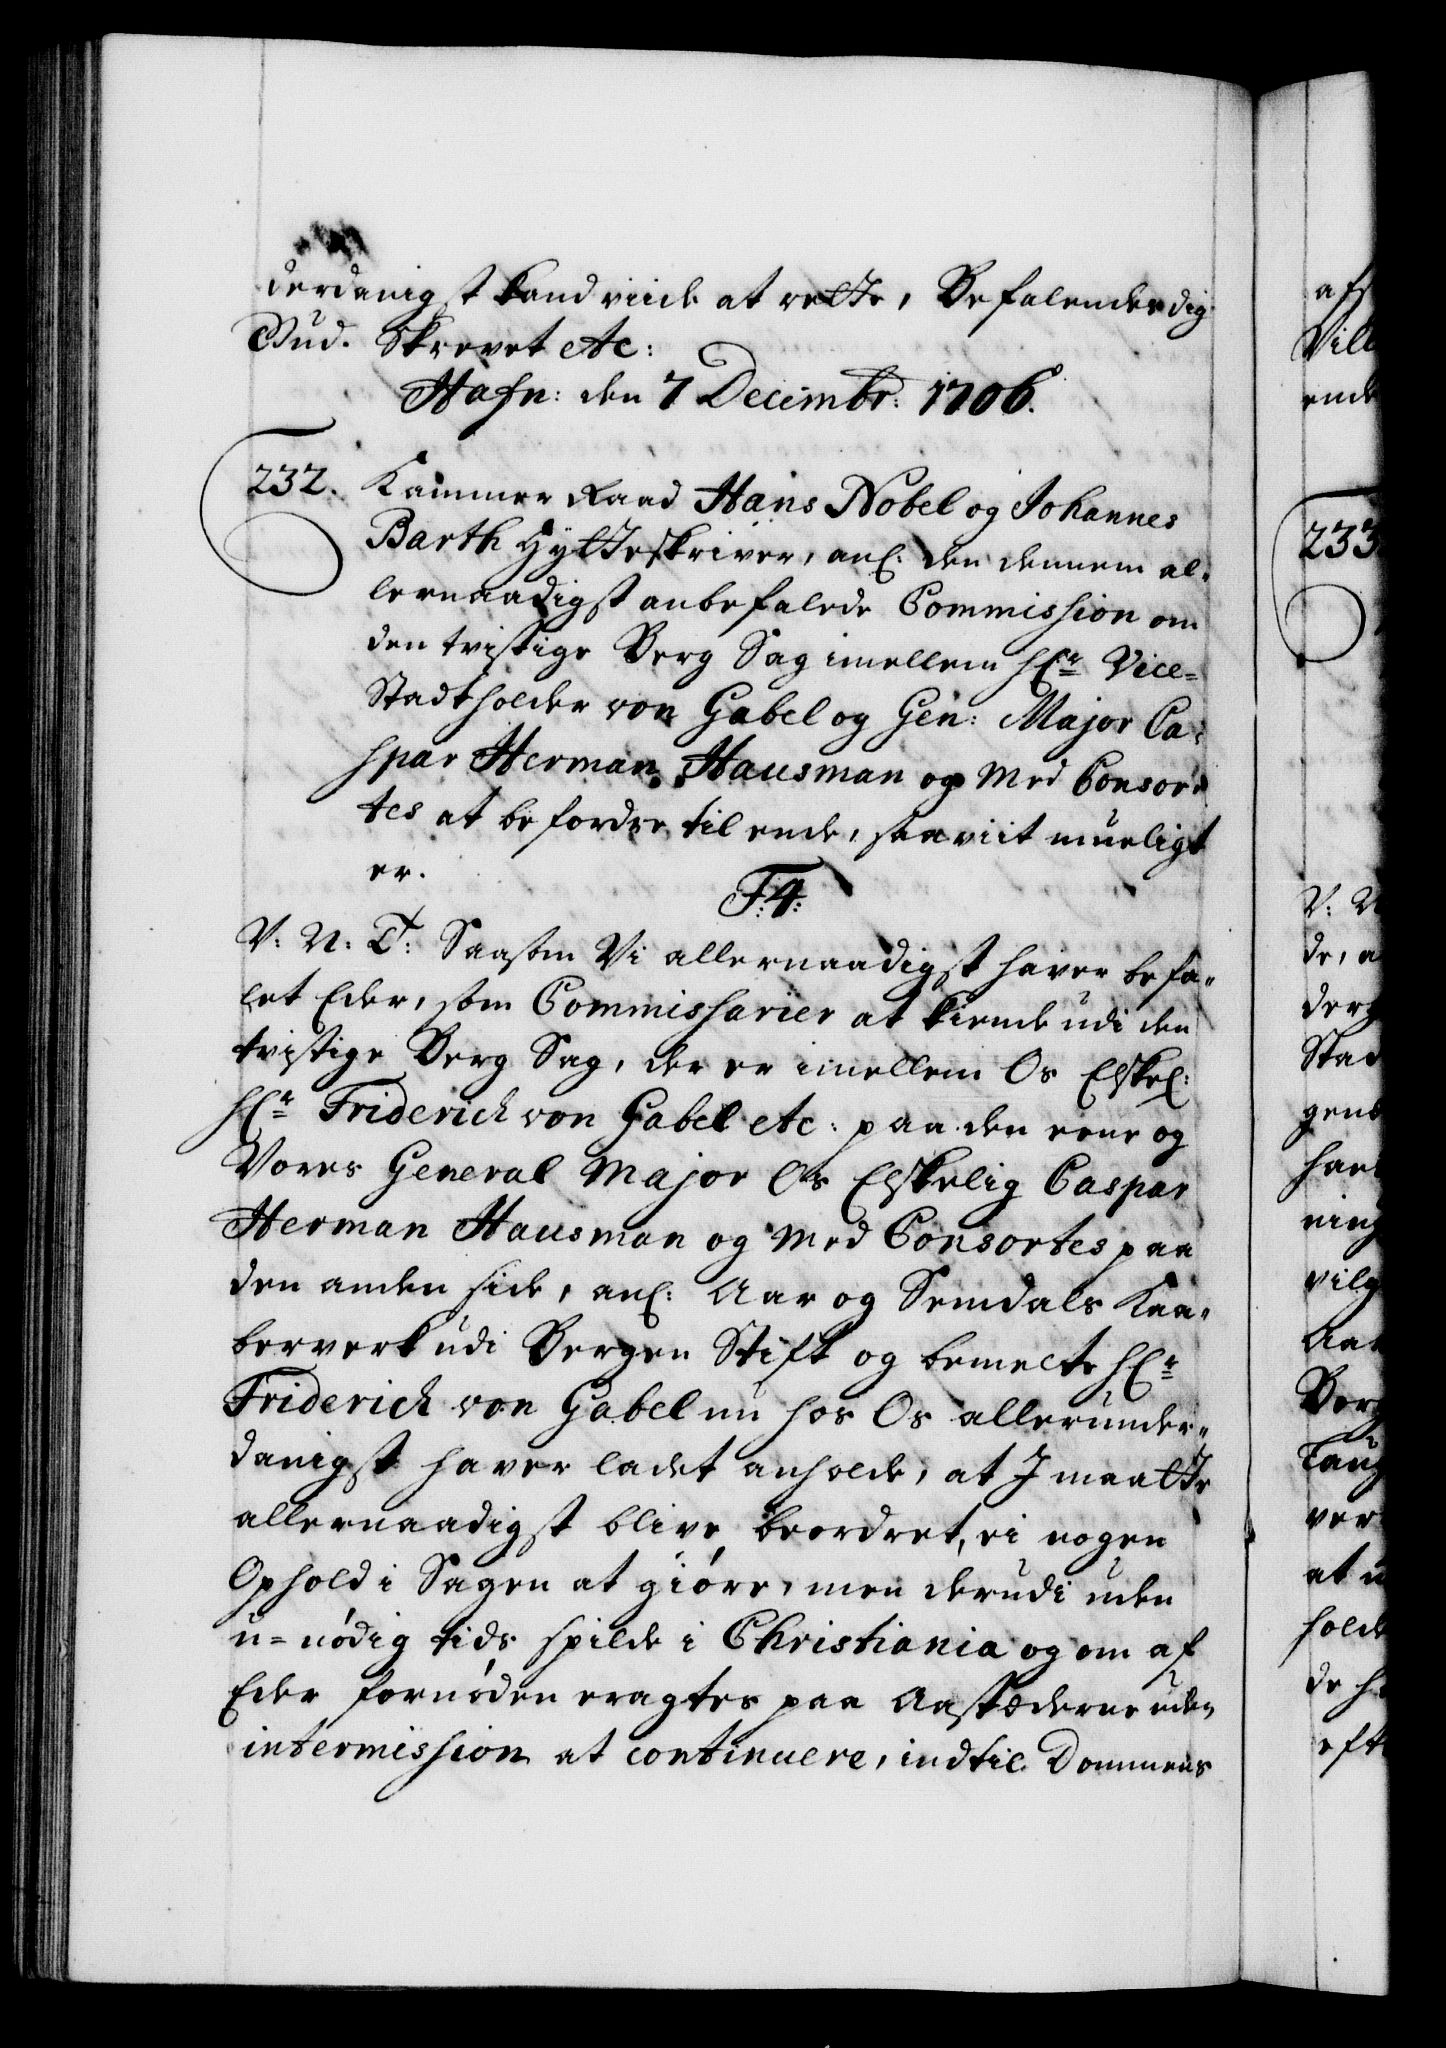 derdanigst kand viide at rette, Befalendes dig
Gud. Skrevet etc:
Hafn: den 7 Decembr: 1706.
232. Kammer Raad Hans Nobel og Johannes
Barth Hytteskriver, anl: den dennem al-
lernaadigst anbefalede Commission om
den tvistige Berg Sag imellem Hr Vice-
Stadtholder von Gabel og Gen: Major Ca-
spar Herman Hausman og Med Consor-
tes at befordre til ende, saa viit mueligt
er.
F: 4:
V: N: T: Saasom Vi allernaadigst haver befa-
let Eder, som Commissarier at kiende udi den
tvistige Berg Sag, der er imellem Os Elskel:
Hr Friderich von Gabel etc: paa den eene og
Vores General Major Os Elskelig Caspar
Herman Hausman og Med Consortes paa
den anden side, anl: Aar og Semdals Kaa-
berverk udi Bergen Stift og bemelte Hr
Friderich von Gabel nu hos Os allerunder-
danigst haver ladet anholde, at I maatte
allernaadigst blive beordret, ei nogen
Ophold i Sagen at giøre, men derudi uden
u-nødig tids spilde i Christiania og om af
Eder fornøden eragtes paa Aastæderne uden
intermission at continuere, indtil Dommens
233